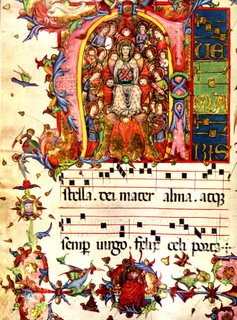 A
VE
MA
RIS
stella. dei mater alma. atqꝫ
semp uirgo. felix celi porta